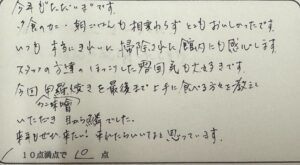 今年も"ただいま"です。
夕食のカニ・朝ごはんも相変わらずとてもおいしかったです。
いつも本当にきれいに掃除された館内にも感心します。
スタッフの方達のほっこりした雰囲気も大好きです。
今回甲羅焼きを最後まで上手に食べる方を教えて
カニ味噌
いただき目から鱗でした。
来年もぜひ来たい!来れたらいいなと思っています。
10点満点で 10 点